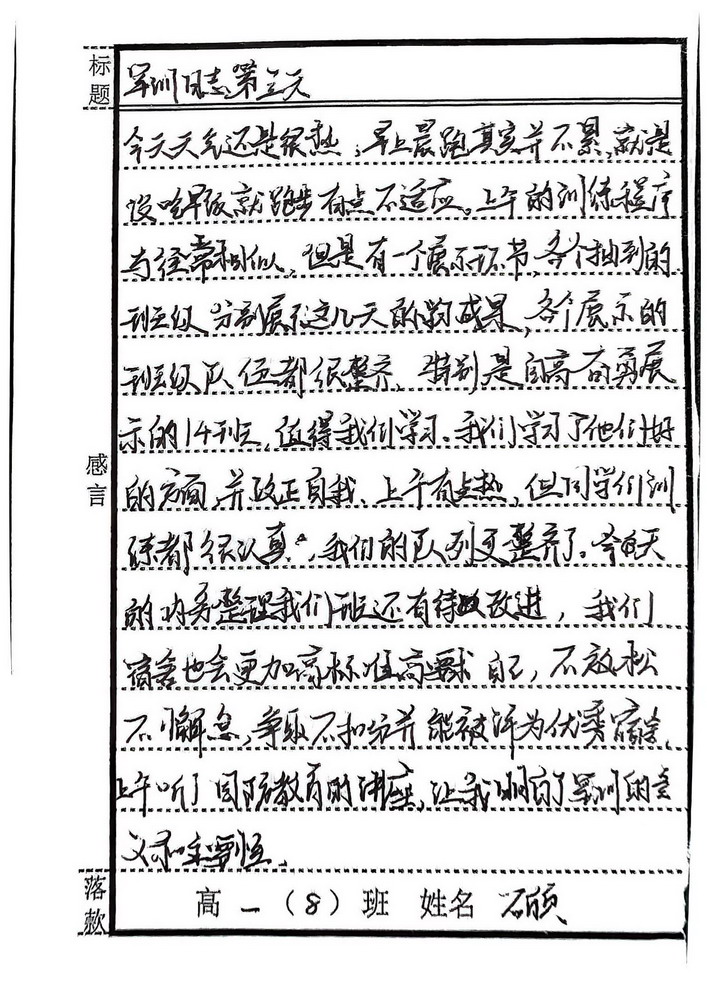 标题
军训日志第三天
今天天气还是很热，早上晨跑其实并不累，就是
没吃早饭就跑步有点不适应。上午的训练程序
与经常相似，但是有一个展示环节，各个抽到的
班级分别展示这几天的成果，各个展示的
班级队伍都很整齐，特别是自高奋勇展
示的14班，值得我们学习。我们学习了他们好
的方面，并改正自我，上午有点热，但同学们训
练都很认真，我们的队列更整齐了。今天
的内务整理我们班还有待改进，我们
宿舍也会更加高标准高要求自己，不放松
不懈怠，争取不扣分并能被评为优秀宿舍，
上午听了国防教育的讲座，让我明白了军训的意
义和重要性。
感言
落款
高一（8）班 姓名 石硕